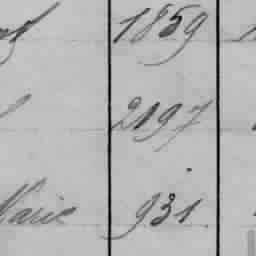 1859
2197
Marie 931